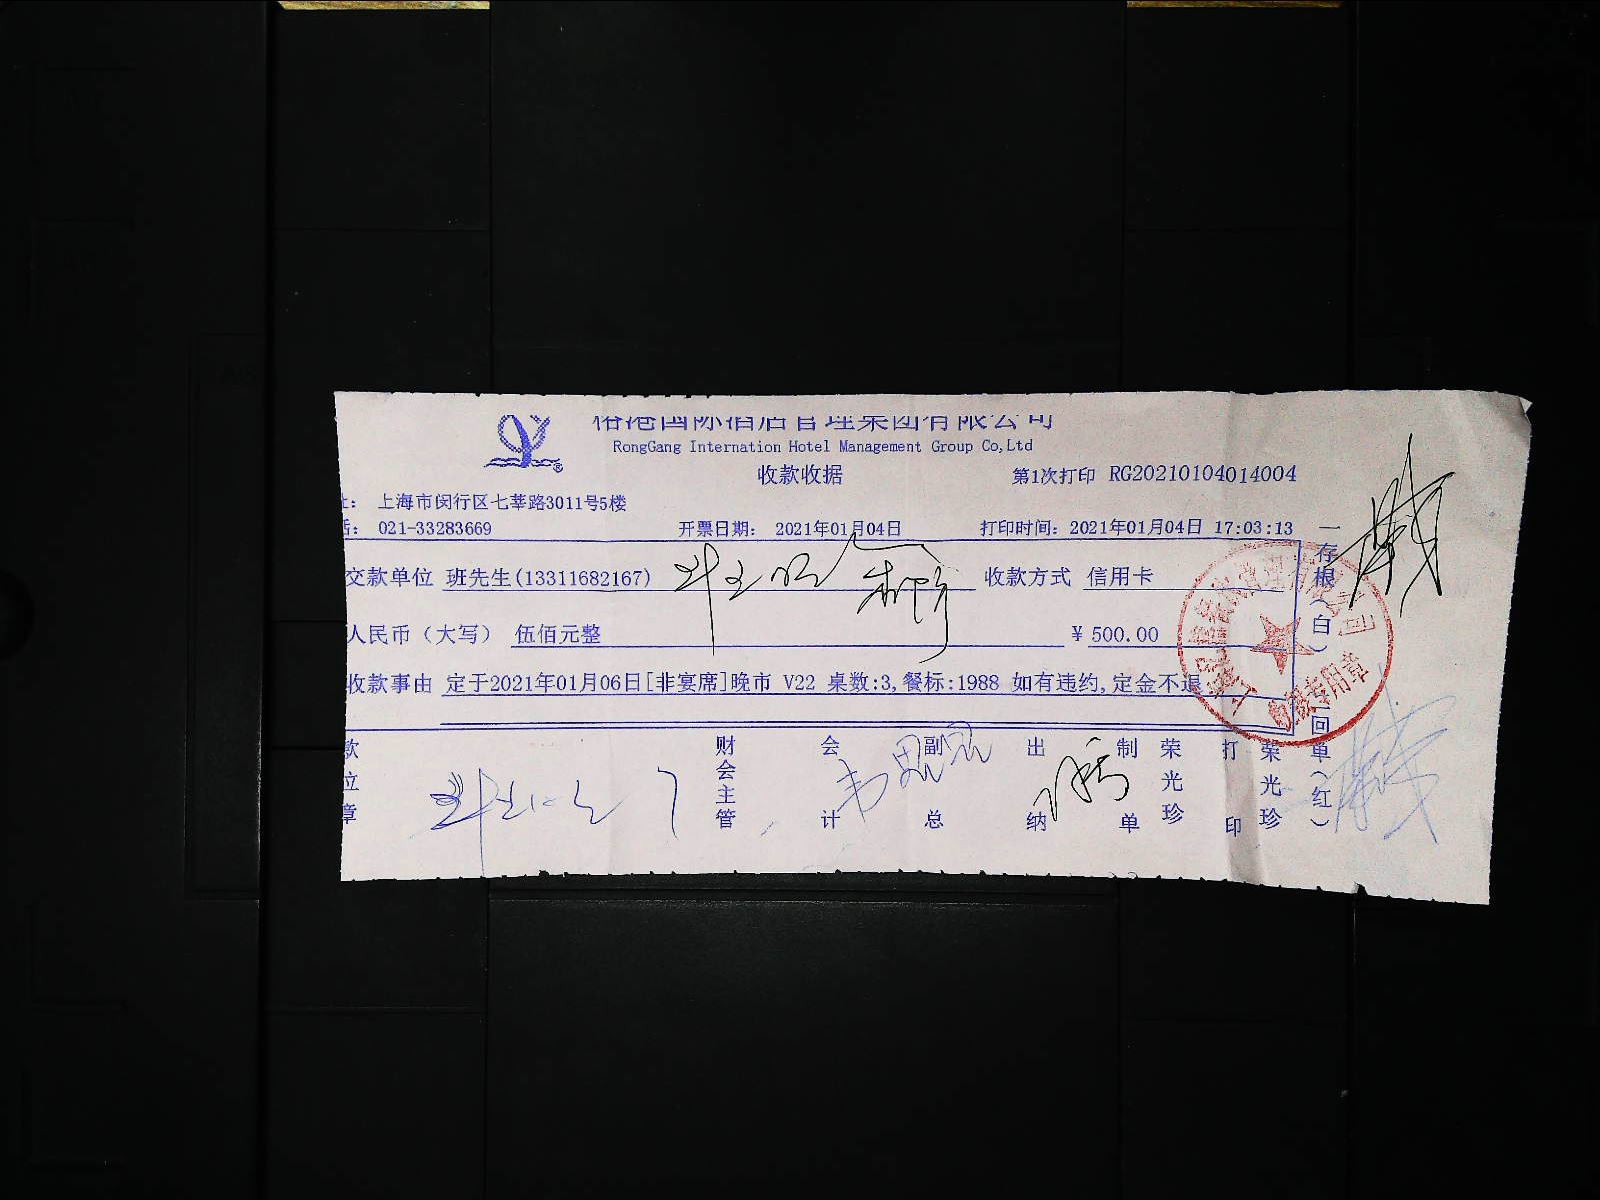 国际酒店管理集团有限公司
RongGang Internation Hotel Management Group Co,Ltd
收款收据
第1次打印 RG20210104014004
址: 上海市闵行区七莘路3011号5楼
话: 021-33283669 开票日期: 2021年01月04日 打印时间: 2021年01月04日 17:03:13
交款单位 班先生(13311682167) 收款方式 信用卡
人民币（大写） 伍佰元整 ￥500.00
收款事由 定于2021年01月06日[非宴席]晚市 V22 桌数:3,餐标:1988 如有违约,定金不退
款位章 财会主管 会计 副总 出纳 制单 荣光珍 打印 荣光珍
一存根(白) 二回单(红)
专用章